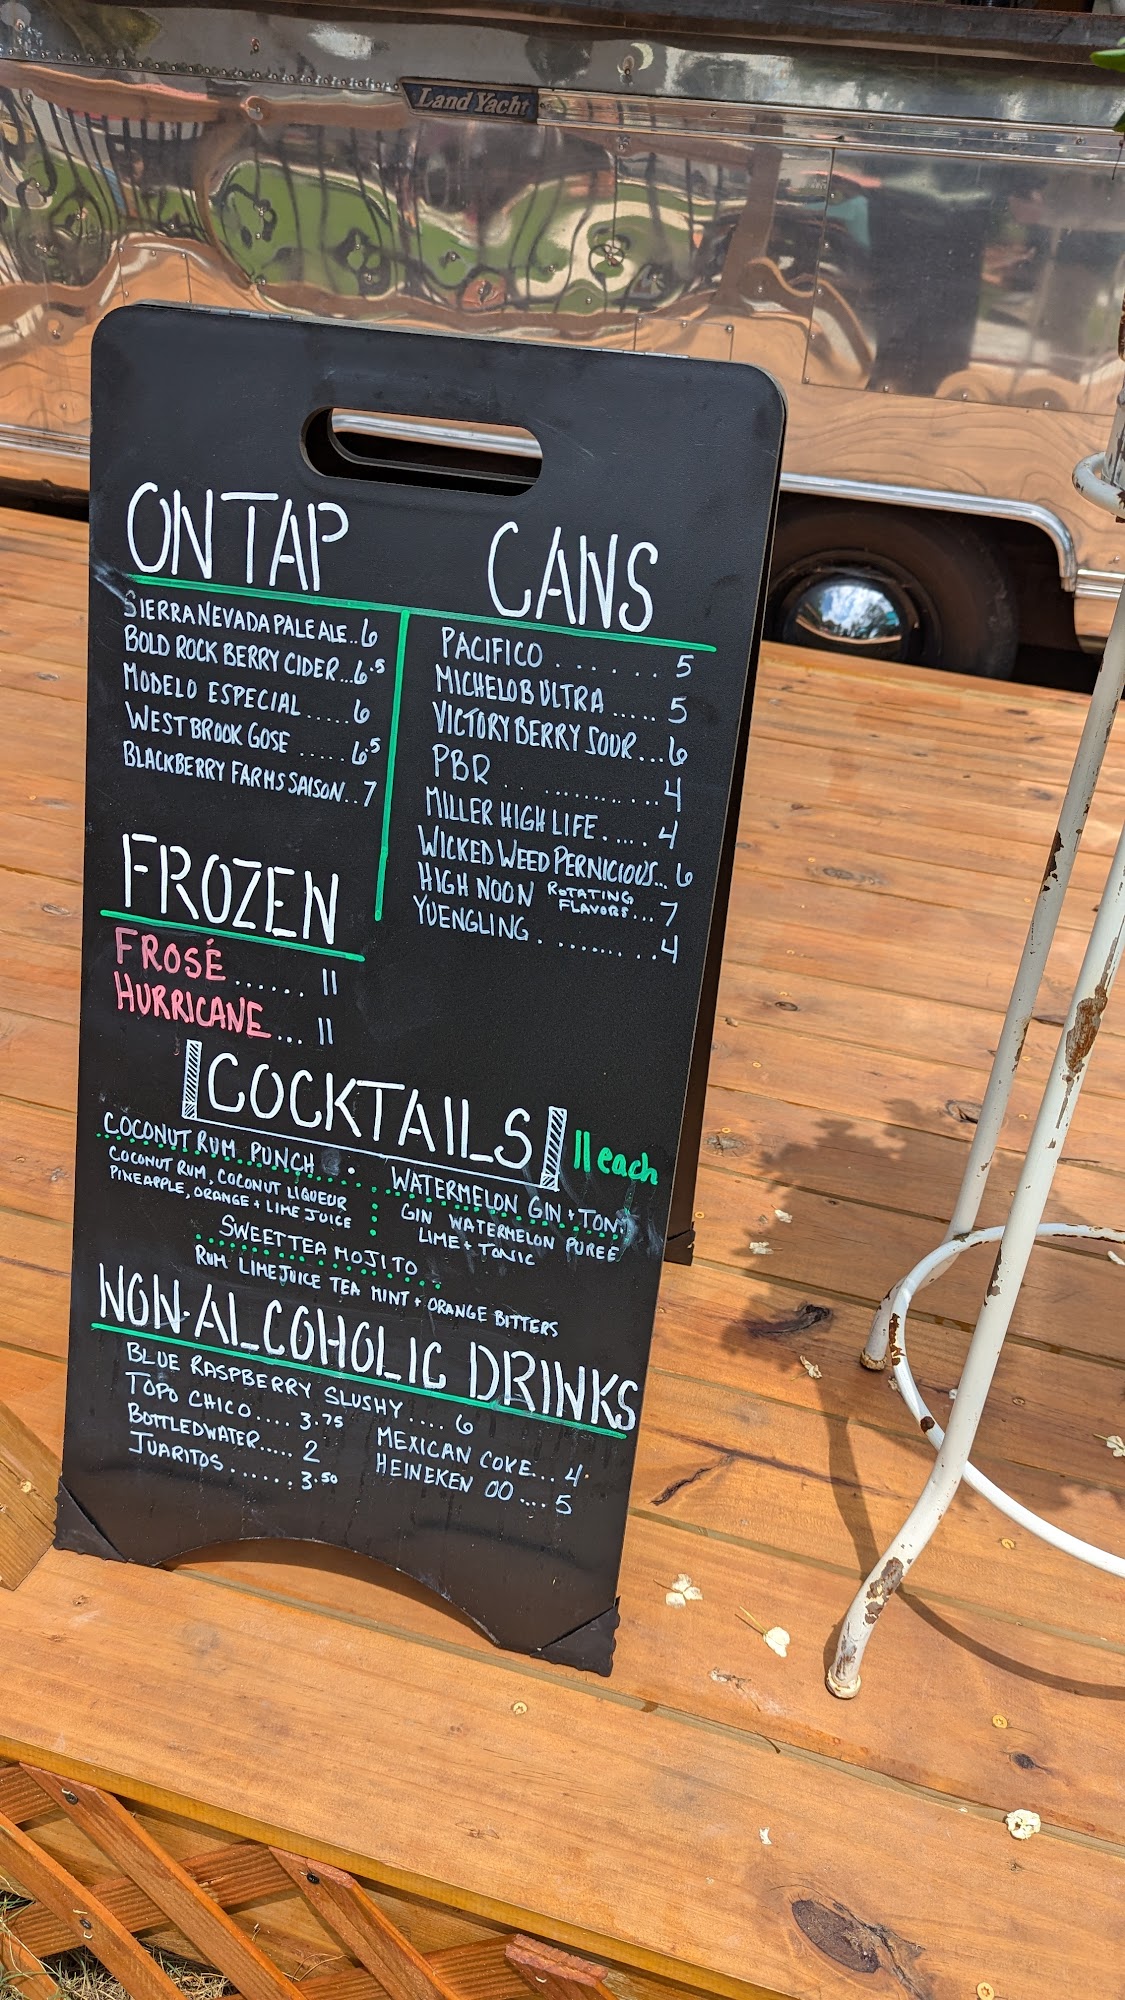 Land Yacht
ON TAP
SIERRA NEVADA PALE ALE..6
BOLD ROCK BERRY CIDER...6.5
MODELO ESPECIAL .....6
WESTBROOK GOSE ......6.5
BLACKBERRY FARMS SAISON..7
CANS
PACIFICO ..... 5
MICHELOB ULTRA ..... 5
VICTORY BERRY SOUR...6
PBR ............4
MILLER HIGH LIFE.....4
WICKED WEED PERNICIOUS...6
HIGH NOON ROTATING FLAVORS...7
YUENGLING..........4
FROZEN
FROSÉ...... 11
HURRICANE... 11
COCKTAILS 11 each
COCONUT RUM PUNCH
COCONUT RUM, COCONUT LIQUEUR
PINEAPPLE, ORANGE + LIME JUICE
WATERMELON GIN + TONI
GIN WATERMELON PUREE
LIME + TONIC
SWEET TEA MOJITO
RUM LIME JUICE TEA MINT + ORANGE BITTERS
NON-ALCOHOLIC DRINKS
BLUE RASPBERRY SLUSHY.... 6
TOPO CHICO.... 3.75
BOTTLED WATER..... 2
JUARITOS.......3.50
MEXICAN COKE... 4.
HEINEKEN 00....5